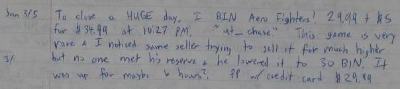 Jan 3/5 To close a HUGE day, I BIN Aero Fighters! 29.99 + $5
for $34.99 at 10:27 PM. "at_chase" This game is very
rare & I noticed same seller trying to sell it for much higher
3/ but no one met his reserve & he lowered it to 30 BIN. It
was up for maybe hours? PP w/ credit card $29.99